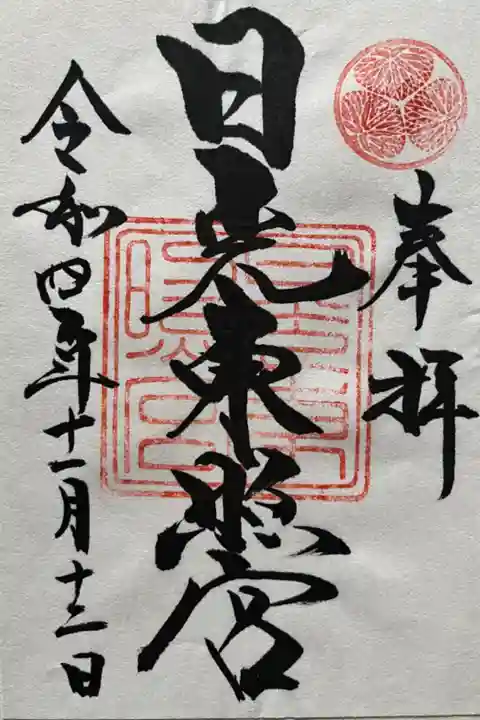 奉拝
日光東照宮
令和四年十一月十三日